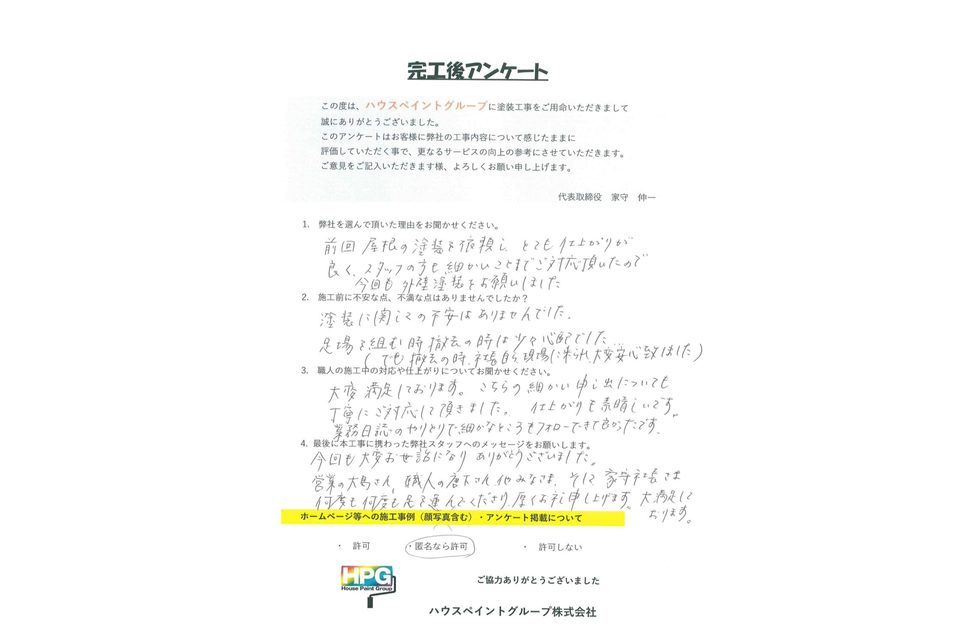 完工後アンケート
この度は、ハウスペイントグループに塗装工事をご用命いただきまして
誠にありがとうございました。
このアンケートはお客様に弊社の工事内容について感じたままに
評価していただく事で、更なるサービスの向上の参考にさせていただきます。
ご意見をご記入いただきます様、よろしくお願い申し上げます。
代表取締役 家守 伸一
1. 弊社を選んで頂いた理由をお聞かせください。
前回 屋根の塗装を依頼し、とても仕上がりが
良く、スタッフの方も細かいことまでご対応頂いたので
今回も外壁塗装をお願いしました
2. 施工前に不安な点、不満な点はありませんでしたか？
塗装に関しての不安はありませんでした。
足場を組む時 撤去の時は少々心配でした…
(でも撤去の時、社長自ら現場に来られ大変安心致しました)
3. 職人の施工中の対応や仕上がりについてお聞かせください。
大変満足しております。こちらの細かい申し出についても
丁寧にご対応して頂きました。 仕上がりも素晴しいです。
業務日誌のやりとりで細かなところもフォローできて良かったです。
4. 最後に本工事に携わった弊社スタッフへのメッセージをお願いします。
今回も大変お世話になり ありがとうございました。
営業の大島さん、職人の さん他みなさま、そして家守社長さは
何度も何度も足を運んでくださり厚くお礼申し上げます。大満足して
おります。
ホームページ等への施工事例（顔写真含む）・アンケート掲載について
・ 許可 ・匿名なら許可 ・ 許可しない
HPG
House Paint Group
ご協力ありがとうございました
ハウスペイントグループ株式会社